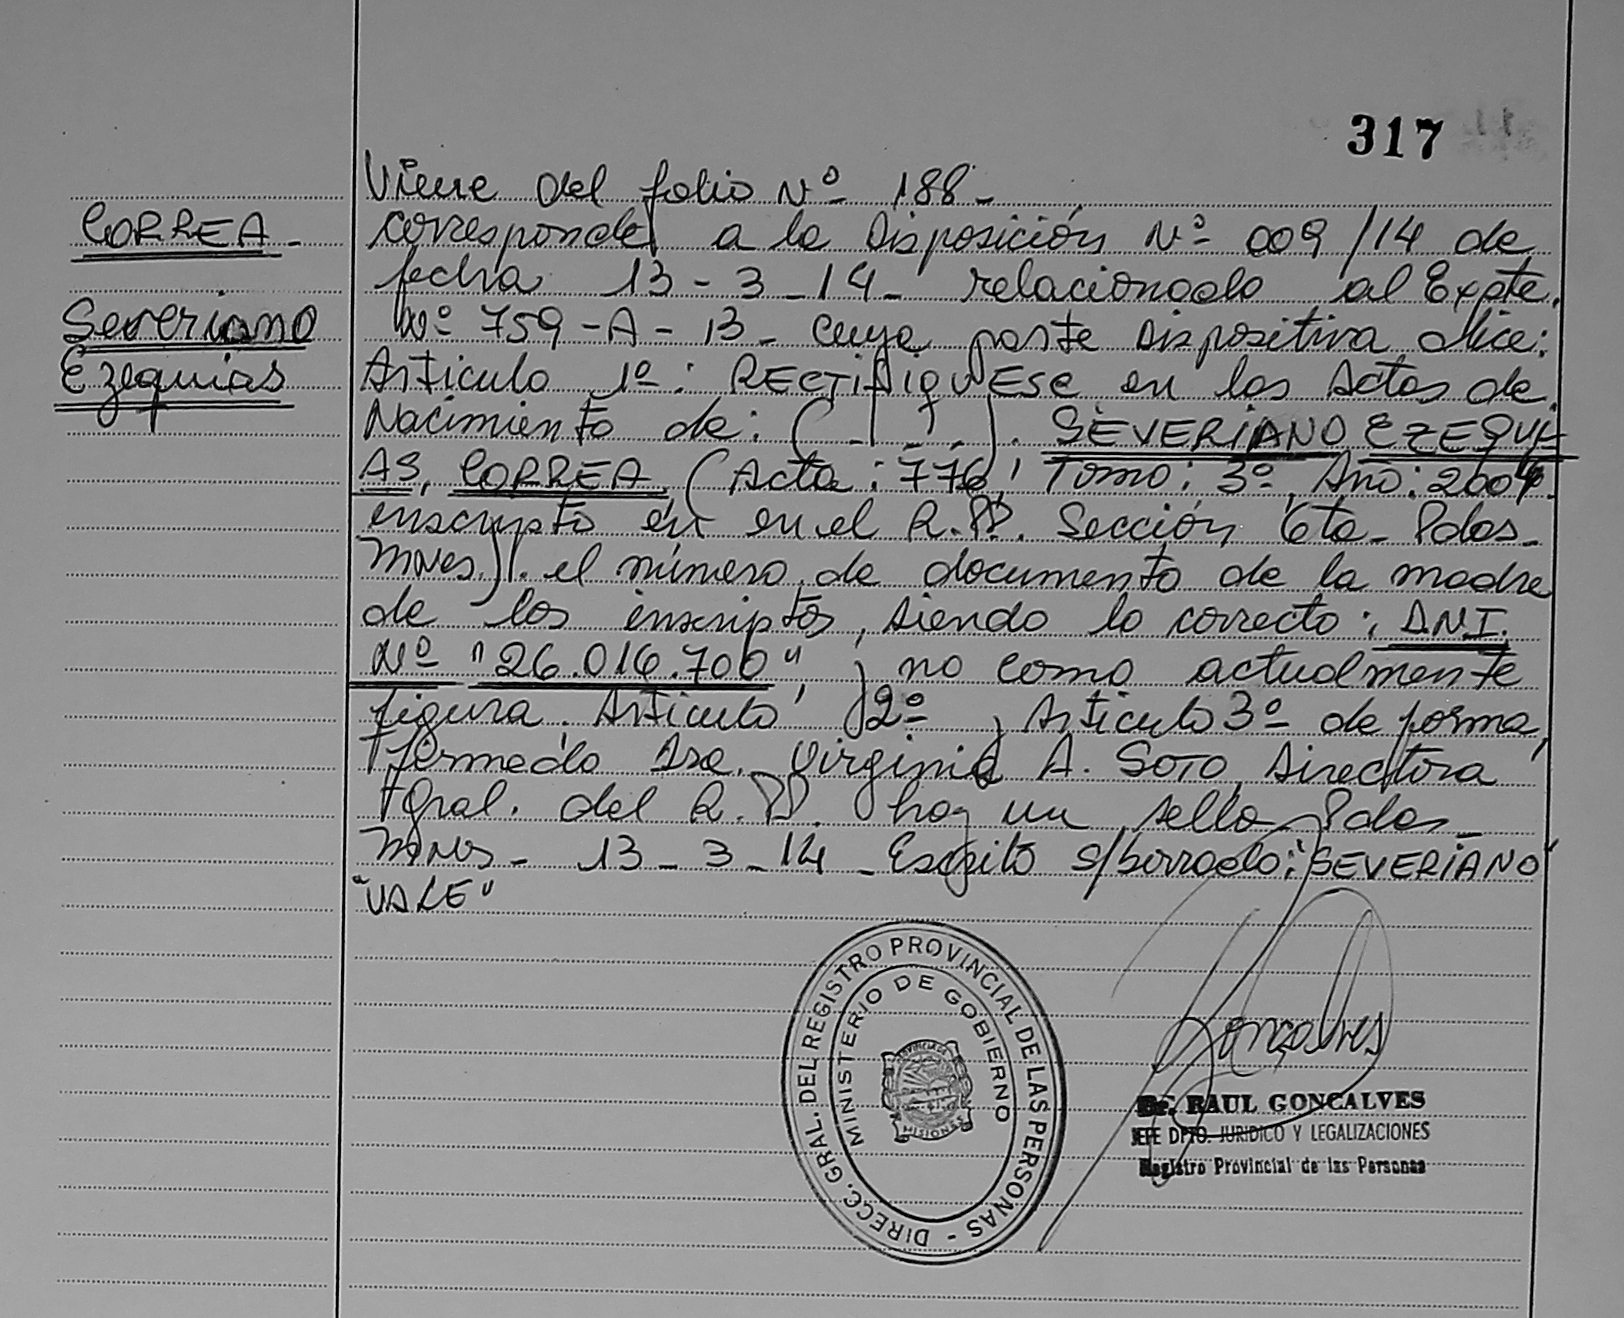 317
Viene del folio Nº 188-
CORREA-
Severiano
Ezequias
corresponde a la Disposición Nº 009/14 de
fecha 13-3-14- relacionado al Expte.
Nº 759-A-13- cuya parte dispositiva dice:
Articulo 1º: RECTIFIQUESE en las Actas de
Nacimiento de: (-.-.-.). SEVERIANO EZEQUI-
AS, CORREA, (Acta: 776, Tomo: 3º, Año: 2004.
inscripto en en el R.PP. Sección 6ta- Pdas-
Mnes)). el número de documento de la madre
de los inscriptos, siendo lo correcto: DNI.
Nº "26.016.700", no como actualmente
figura. Articulo 2º, Articulo 3º de forma,
firmado Dra. Virginia A. Soto, Directora
Gral. del R.PP. hay un sello Pdas-
Mnes- 13-3-14- Escrito s/borrado: "SEVERIANO"
"VALE"
DIRECC. GRAL. DEL REGISTRO PROVINCIAL DE LAS PERSONAS -
MINISTERIO DE GOBIERNO
PROVINCIA DE
MISIONES
Goncalves
Dr. RAUL GONCALVES
JEFE DPTO. JURIDICO Y LEGALIZACIONES
Registro Provincial de las Personas